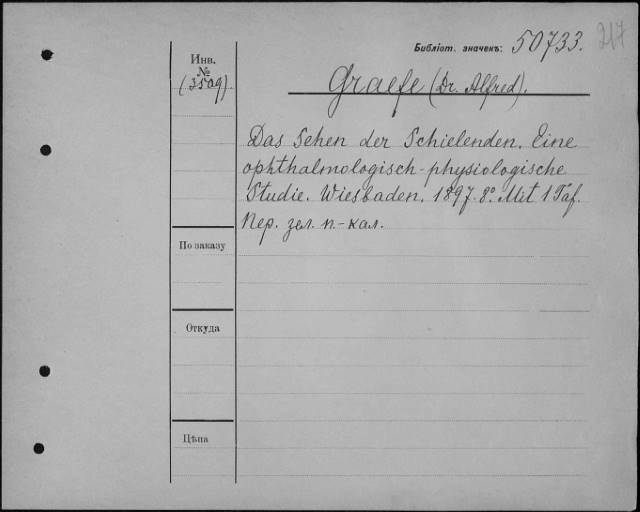 Библіот. значекъ: 50733.
217
Инв.
№
(3509)
Graefe (Dr. Alfred).
Das Sehen der Schielenden. Eine
ophthalmologisch-physiologische
Studie. Wiesbaden. 1897. 8º. Mit 1 Taf.
Пер. зел. п.-кал.
По заказу
Откуда
Цѣна